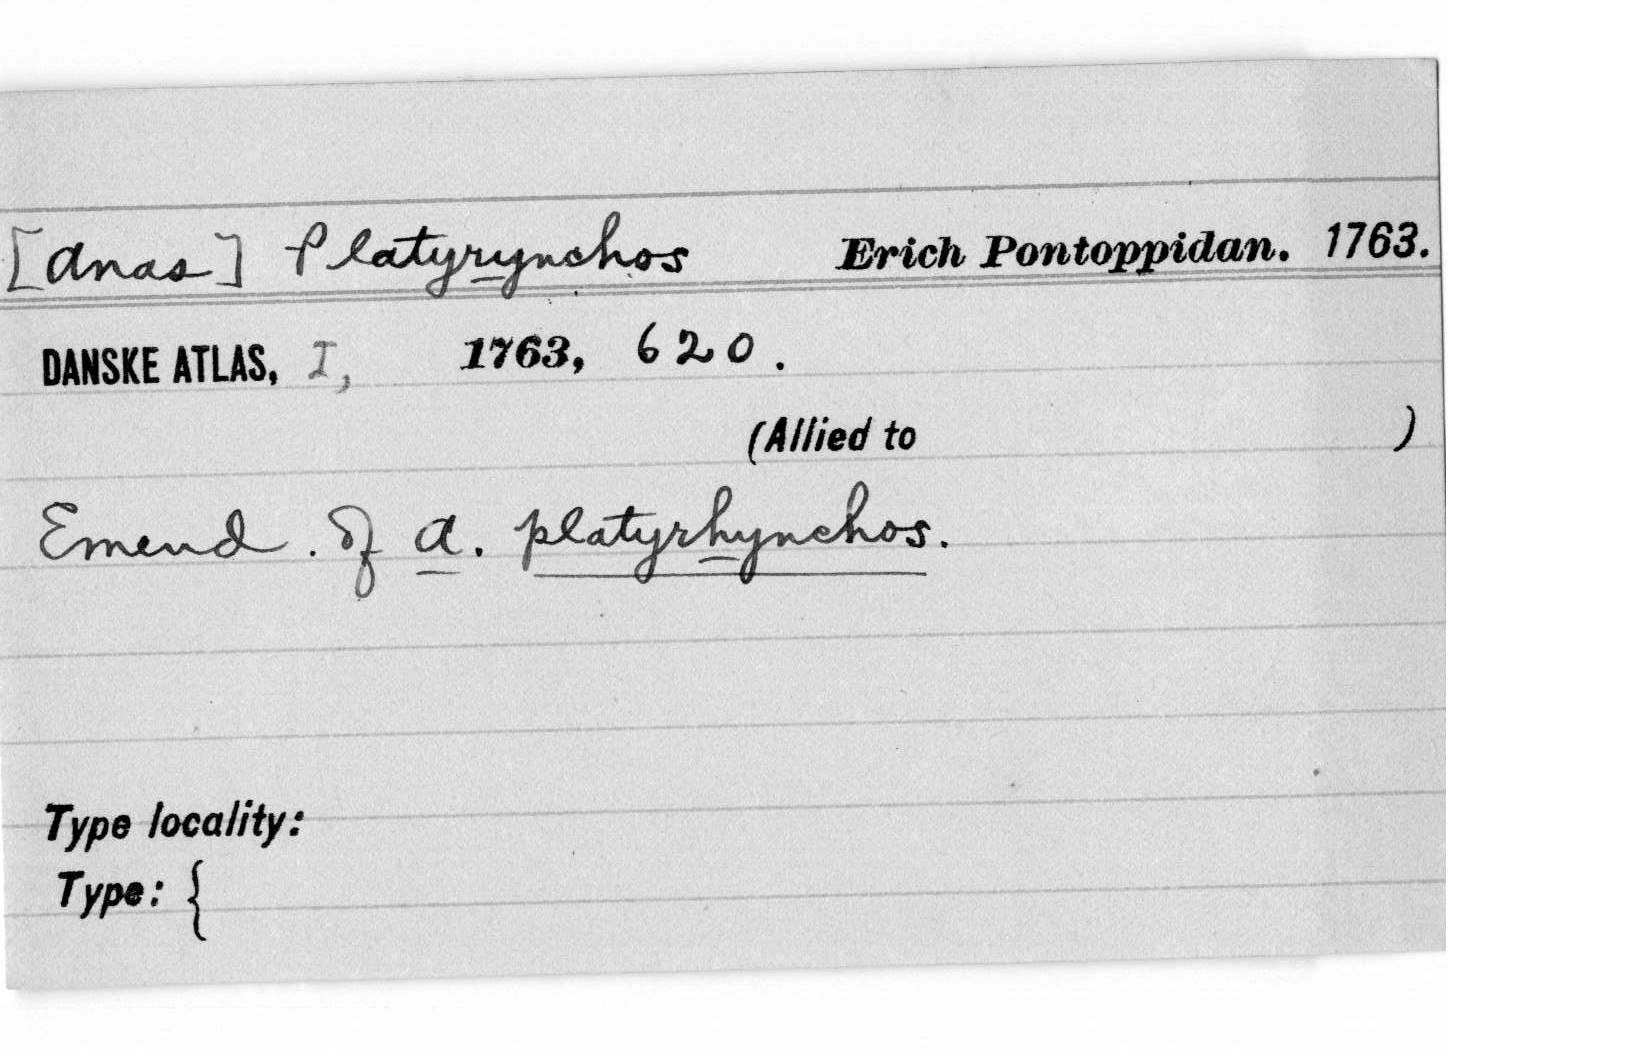 [Anas] Platyrynchos Erich Pontoppidan. 1763.
DANSKE ATLAS, I, 1763, 620.
(Allied to )
Emend. of A. platyrhynchos.
Type locality:
Type: {